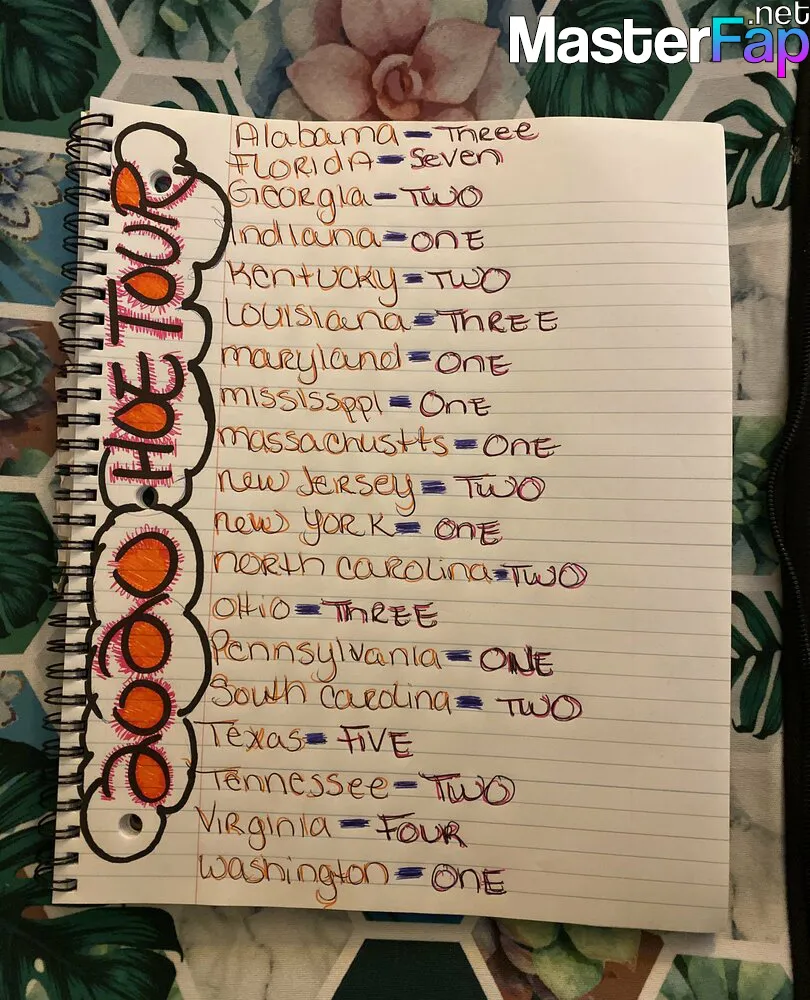 MasterFap
.net
2020 HOE TOUR
Alabama = Three
FLORIDA = Seven
Georgia = TWO
Indiana = ONE
Kentucky = TWO
Louisiana = ThREE
maryland = ONE
mississppi = One
massachustts = ONE
new Jersey = TWO
new YORK = ONE
noRth caRolina = TWO
OHio = ThREE
Pennsylvania = ONE
South carolina = TWO
Texas = FiVE
Tennessee = TWO
ViRginia = FOUR
washington = ONE